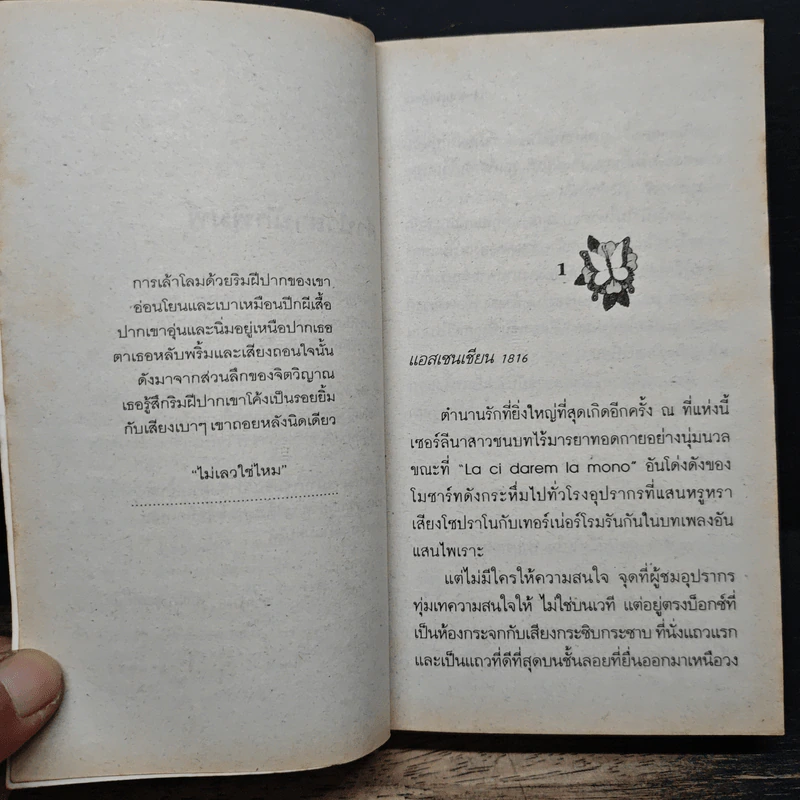 การเล้าโลมด้วยริมฝีปากของเขา
อ่อนโยนและเบาเหมือนปีกผีเสื้อ
ปากเขาอุ่นและนิ่มอยู่เหนือปากเธอ
ตาเธอหลับพริ้มและเสียงถอนใจนั้น
ดังมาจากส่วนลึกของจิตวิญาณ
เธอรู้สึกริมฝีปากเขาโค้งเป็นรอยยิ้ม
กับเสียงเบาๆ เขาถอยหลังนิดเดียว
“ไม่เลวใช่ไหม”
1
แอสเซนเชียน 1816
ตำนานรักที่ยิ่งใหญ่ที่สุดเกิดอีกครั้ง ณ ที่แห่งนี้
เซอร์ลีนาสาวชนบทไร้มารยาทอดกายอย่างนุ่มนวล
ขณะที่ “La ci darem la mono” อันโด่งดังของ
โมซาร์ทดังกระหึ่มไปทั่วโรงอุปรากรที่แสนหรูหรา
เสียงโซปราโนกับเทอร์เน่อร์โรมรันกันในบทเพลงอัน
แสนไพเราะ
แต่ไม่มีใครให้ความสนใจ จุดที่ผู้ชมอุปรากร
ทุ่มเทความสนใจให้ ไม่ใช่บนเวที แต่อยู่ตรงบ็อกซ์ที่
เป็นห้องกระจกกับเสียงกระซิบกระซาบ ที่นั่งแถวแรก
และเป็นแถวที่ดีที่สุดบนชั้นลอยที่ยื่นออกมาเหนือวง